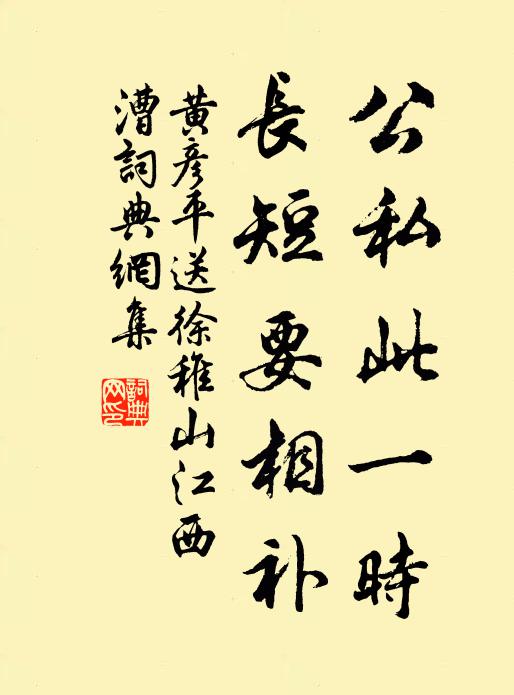 公私此一時
長短要相补
黄彦平送徐稚山江西
漕詞典網集
詞典網印